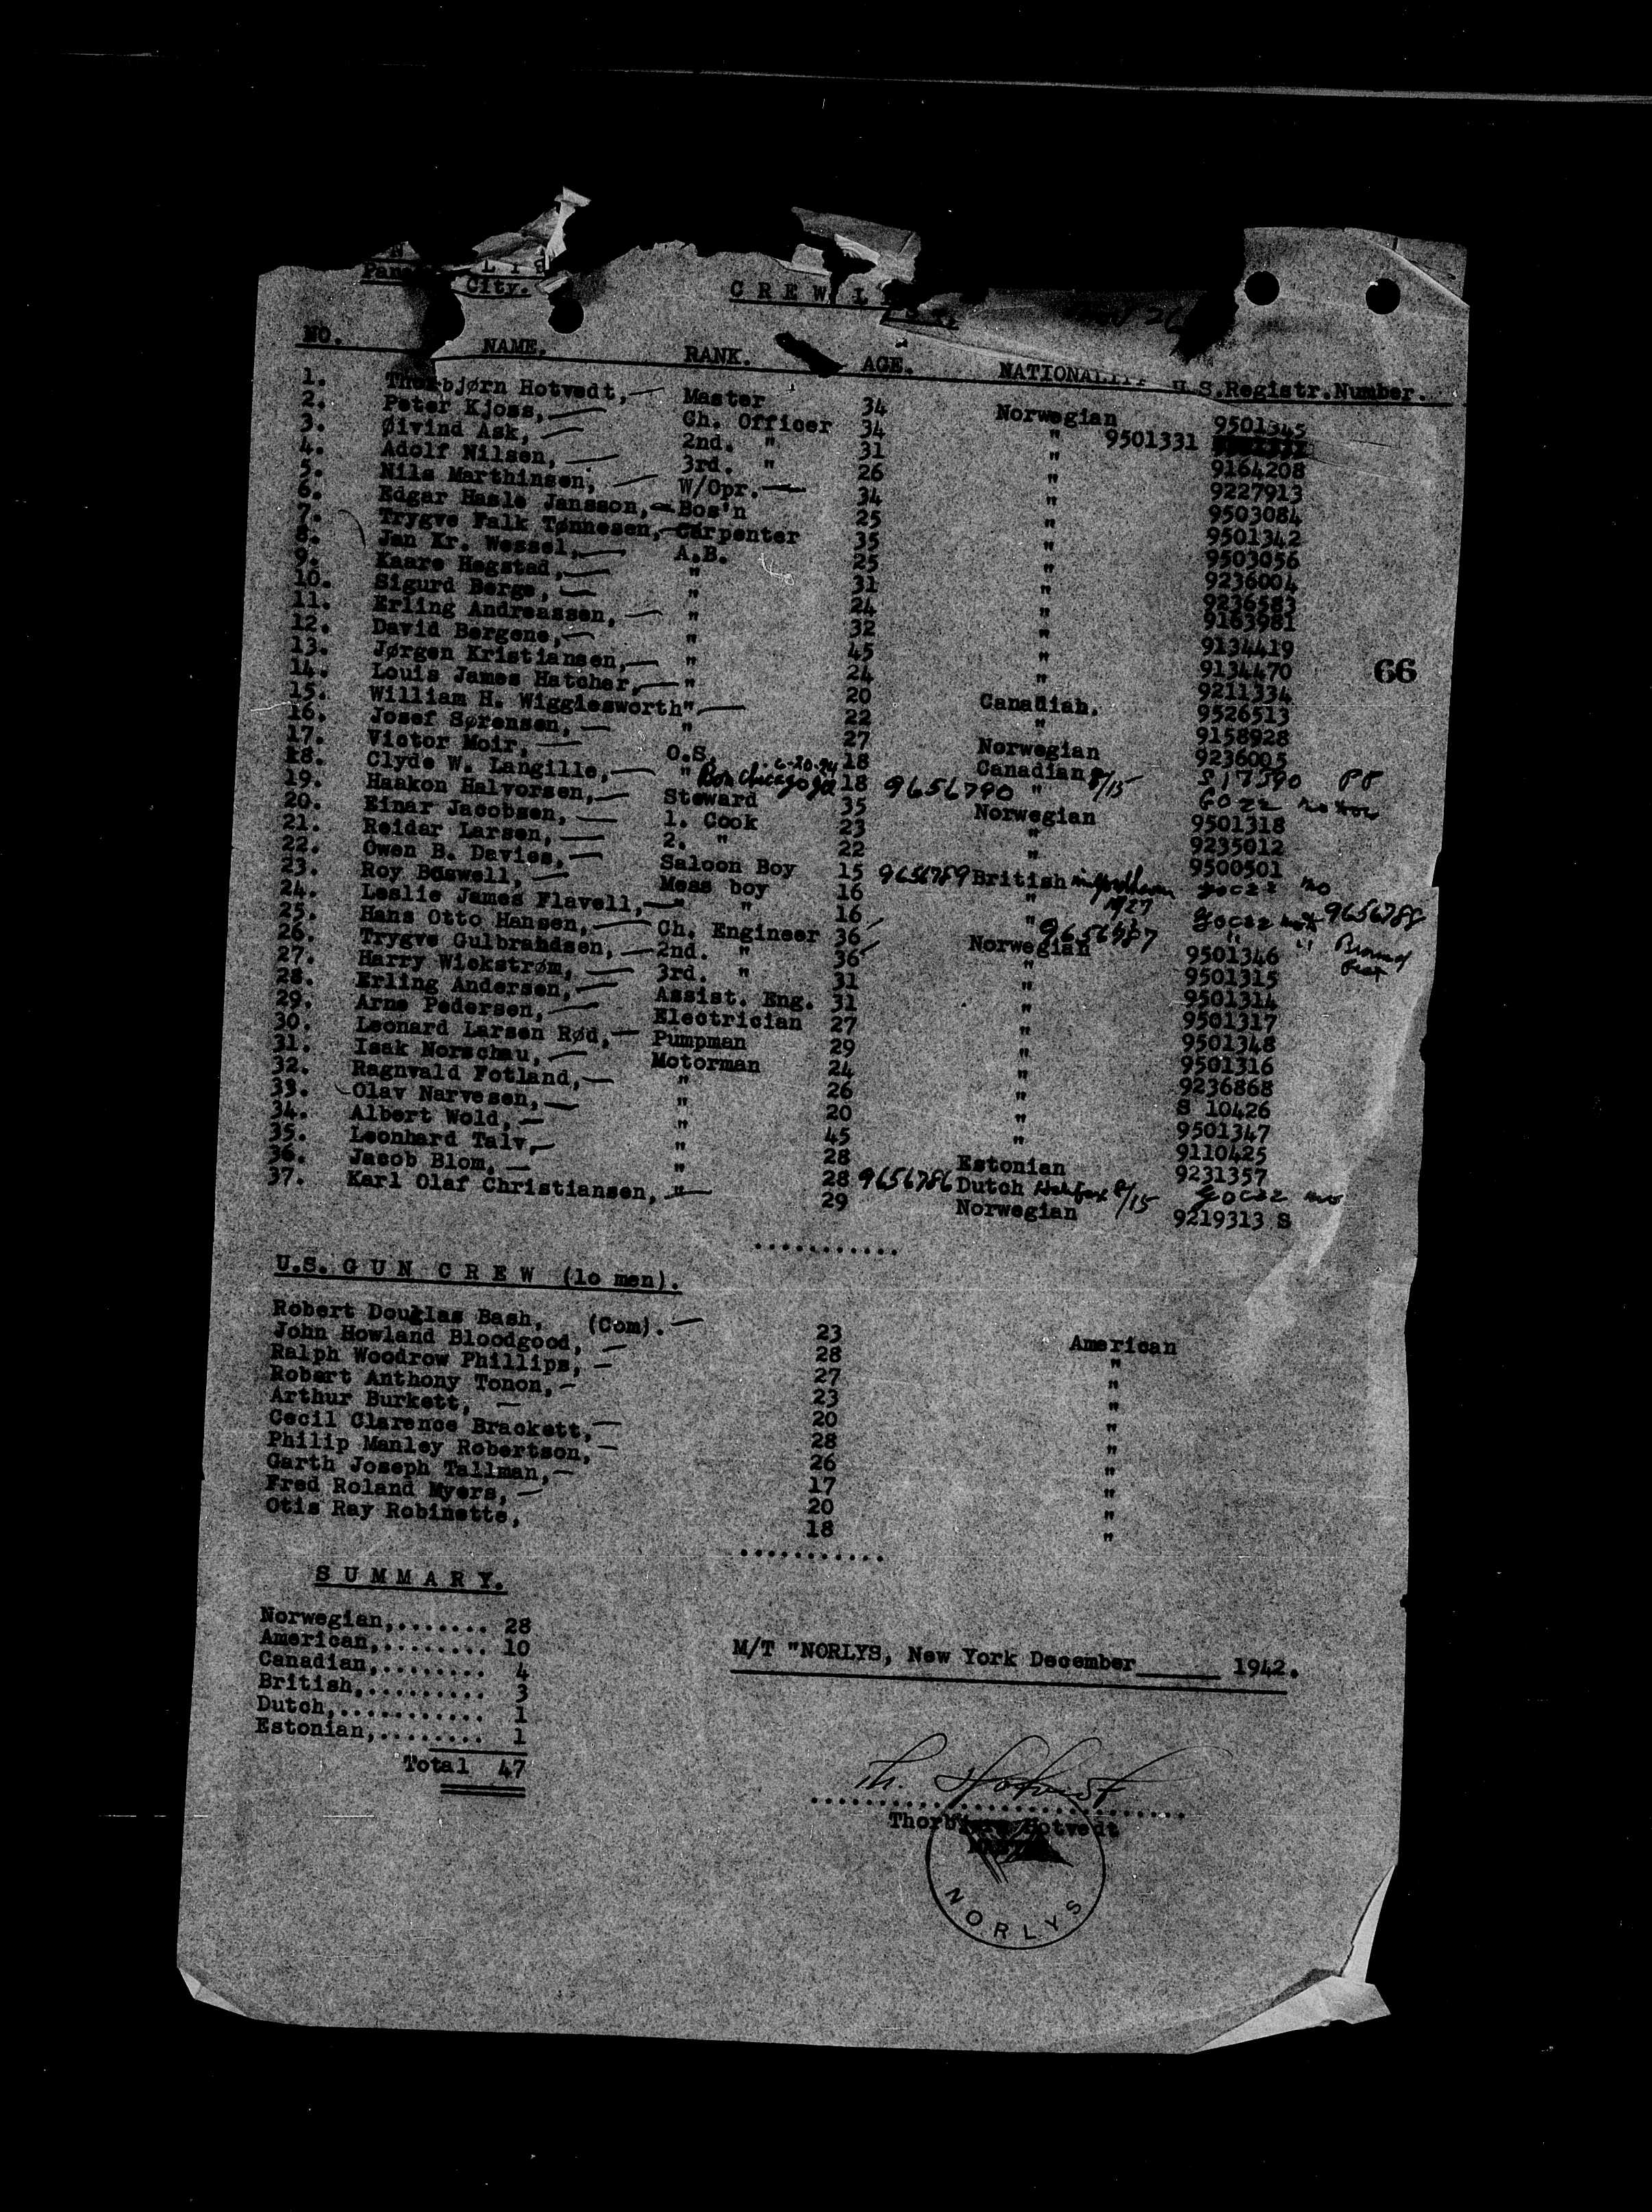 City.
CREW LIST.
NO. NAME. RANK. AGE. NATIONALITY U.S.Registr.Number.
1. Thorbjørn Hotvedt, Master 34 Norwegian 9501345
2. Peter Kjoss, Ch. Officer 34 " 9501331
3. Øivind Ask, 2nd. " 31 " 9164208
4. Adolf Nilsen, 3rd. " 26 " 9227913
5. Nils Marthinsen, W/Opr. 34 " 9503084
6. Edgar Hasle Jansson, Bos'n 25 " 9501342
7. Trygve Falk Tønnesen, Carpenter 35 " 9503056
8. Jan Kr. Wessel, A.B. 25 " 9236004
9. Kaare Hegstad, " 31 " 9236583
10. Sigurd Berge, " 24 " 9163981
11. Erling Andreassen, " 32 " 9134419
12. David Bergene, " 45 " 9134470
13. Jørgen Kristiansen, " 24 " 9211334
14. Louis James Hatcher, " 20 Canadian. 9526513
66
15. William H. Wigglesworth " 22 " 9158928
16. Josef Sørensen, " 27 Norwegian 9236005
17. Victor Moir, O.S. 18 Canadian 8/15 S 17390 PP
18. Clyde W. Langille, " 6-20-24 18 9656790 "
19. Haakon Halvorsen, Steward 35 Norwegian 9501318
20. Einar Jacobsen, 1. Cook 23 " 9235012
21. Reidar Larsen, 2. " 22 " 9500501
22. Owen B. Davies, Saloon Boy 15 9656789 British
23. Roy Boswell, Mess boy 16 " 9656788
24. Leslie James Flavell, " " 16 " 9656787
25. Hans Otto Hansen, Ch. Engineer 36 Norwegian 9501346
26. Trygve Gulbrandsen, 2nd. " 36 " 9501315
27. Harry Wickstrøm, 3rd. " 31 " 9501314
28. Erling Andersen, Assist. Eng. 31 " 9501317
29. Arne Pedersen, Electrician 27 " 9501348
30. Leonard Larsen Rød, Pumpman 29 " 9501316
31. Isak Norschau, Motorman 24 " 9236868
32. Ragnvald Fotland, " 26 " S 10426
33. Olav Narvesen, " 20 " 9501347
34. Albert Wold, " 45 " 9110425
35. Leonhard Talv, " 28 Estonian 9231357
36. Jacob Blom, " 28 9656786 Dutch 8/15
37. Karl Olaf Christiansen, " 29 Norwegian 9219313 S
...........
U.S. GUN CREW (1o men).
Robert Douglas Bash, (Com). 23 American
John Howland Bloodgood, 28 "
Ralph Woodrow Phillips, 27 "
Robert Anthony Tonon, 23 "
Arthur Burkett, 20 "
Cecil Clarence Brackett, 28 "
Philip Manley Robertson, 26 "
Garth Joseph Tallman, 17 "
Fred Roland Myers, 20 "
Otis Ray Robinette, 18 "
...........
SUMMARY.
Norwegian,....... 28
American,........ 10
Canadian,........ 4
British,......... 3
Dutch,........... 1
Estonian,........ 1
Total 47
M/T "NORLYS, New York December 1942.
Th. Hotvedt
Thorbjørn Hotvedt
NORLYS